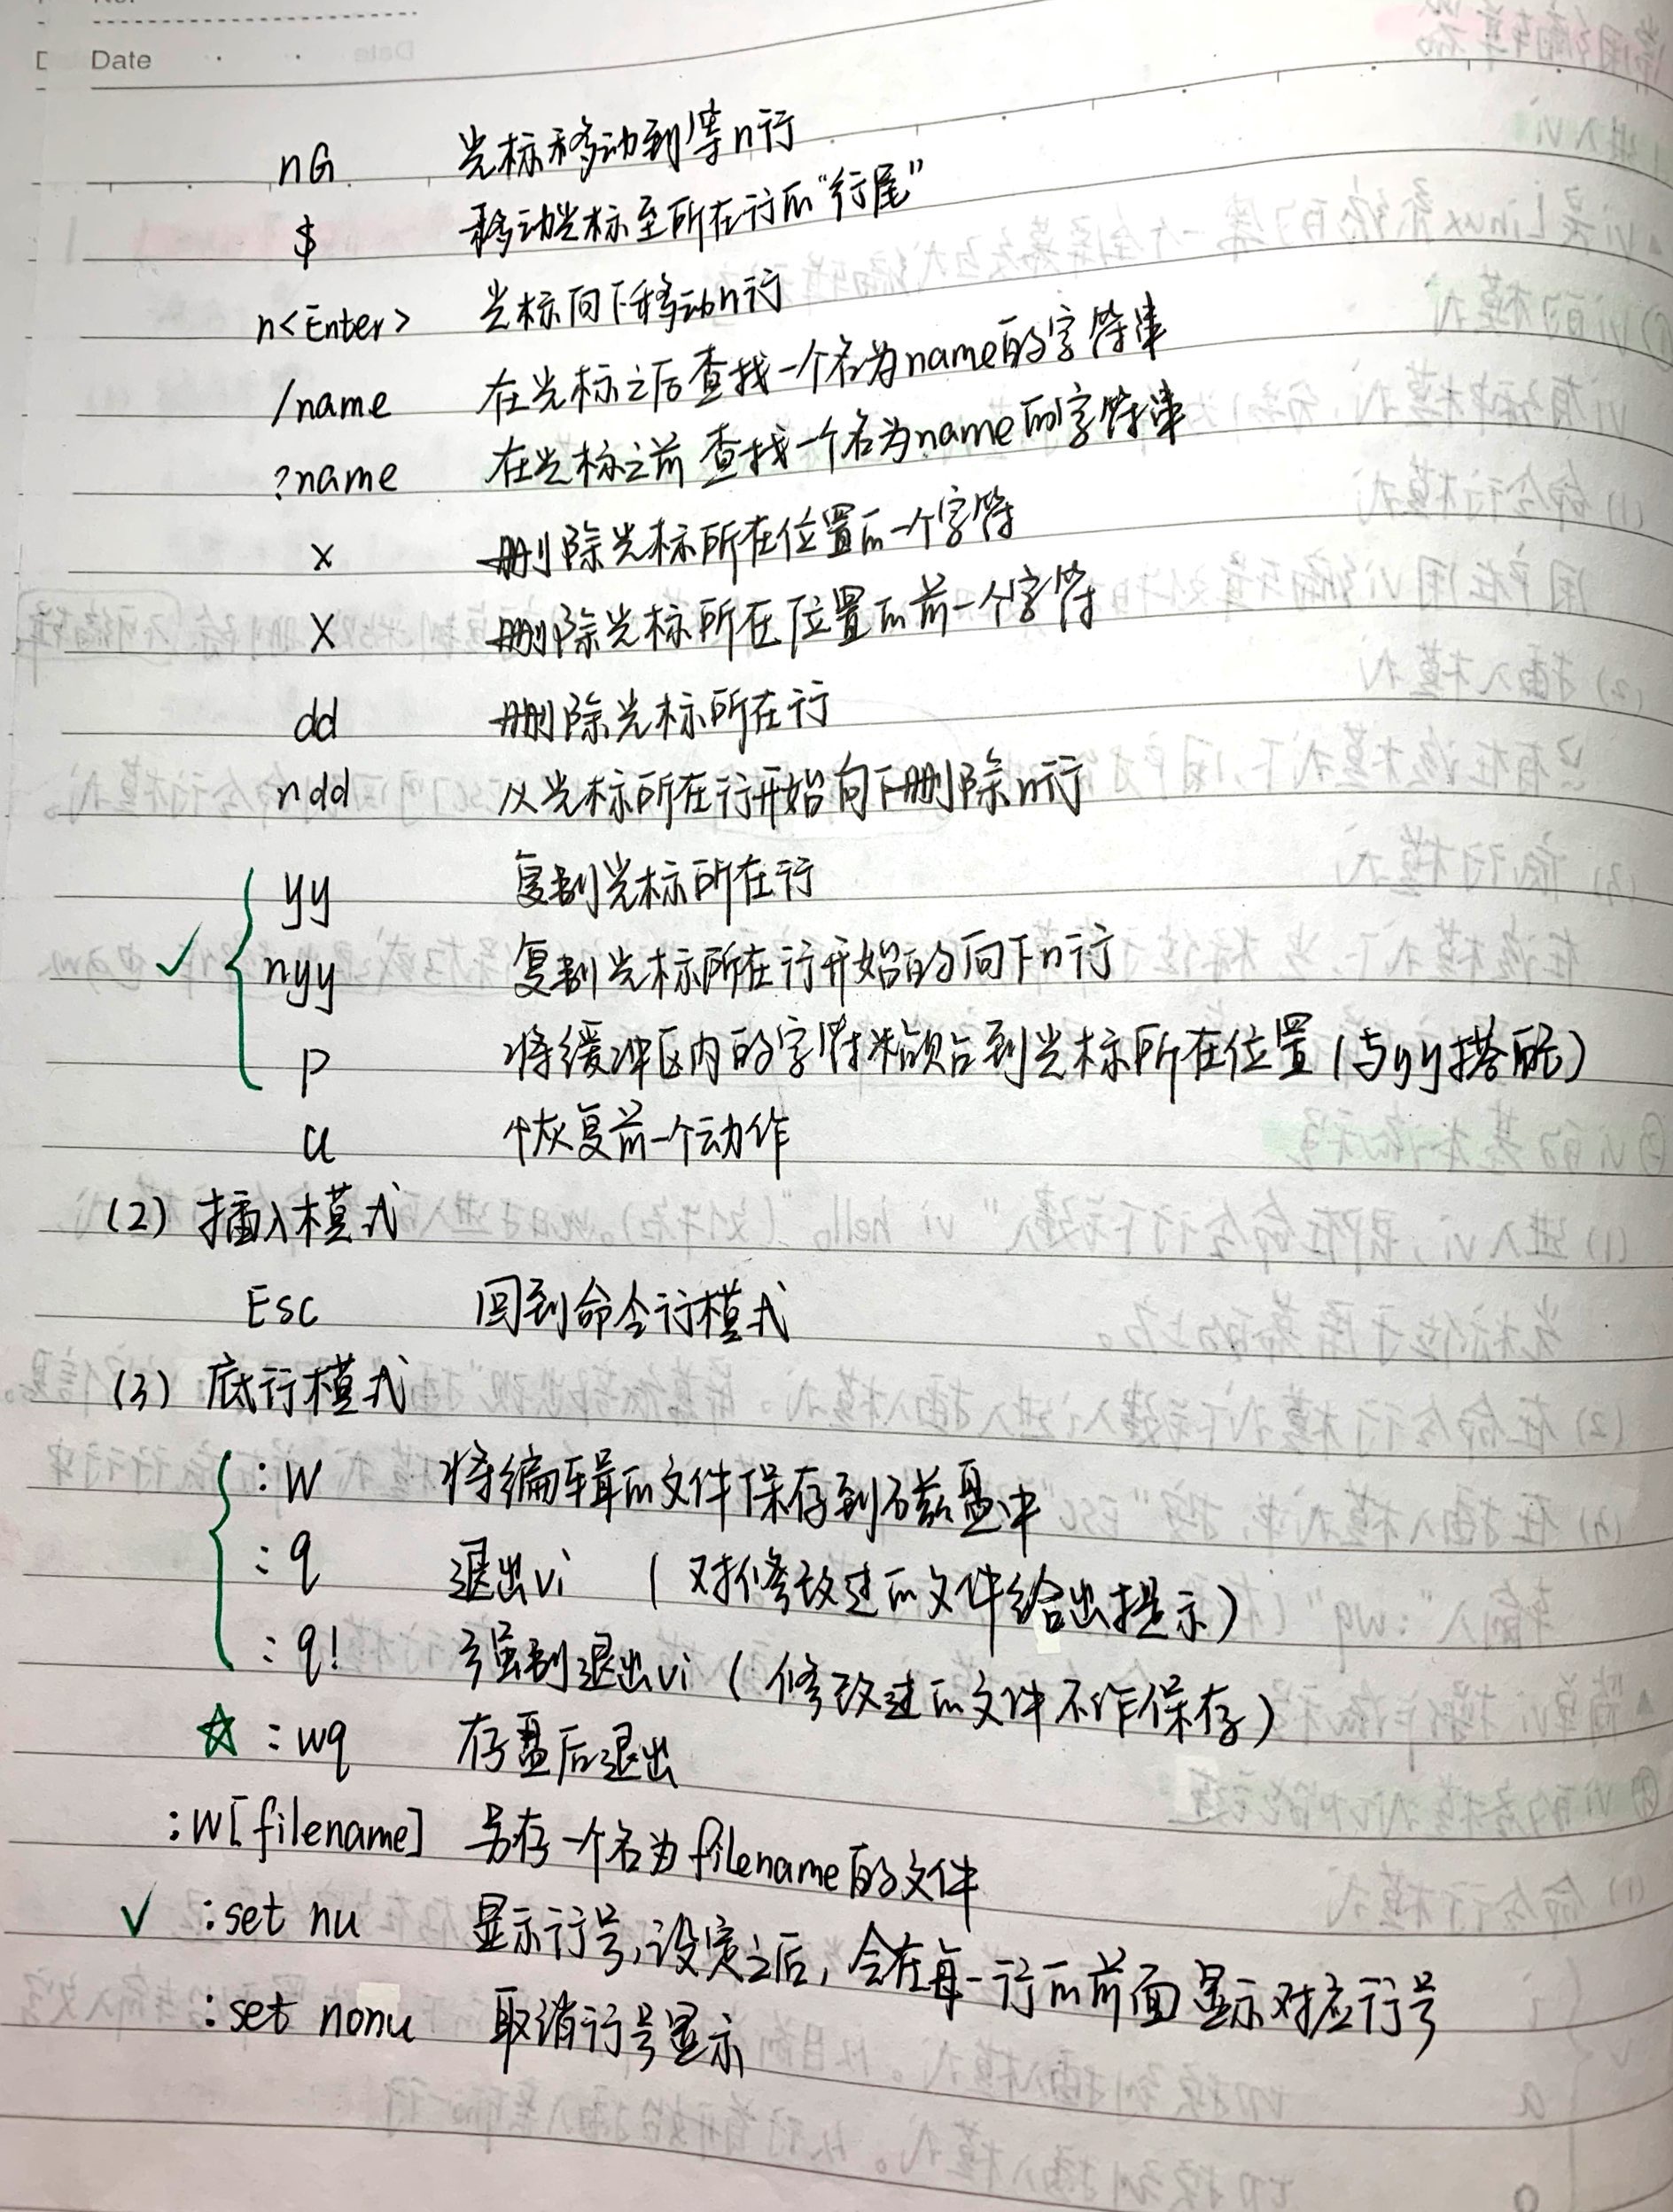 Date
nG 光标移动到第n行
$ 移动光标至所在行的“行尾”
n<Enter> 光标向下移动n行
/name 在光标之后查找一个名为name的字符串
?name 在光标之前查找一个名为name的字符串
x 删除光标所在位置的一个字符
X 删除光标所在位置的前一个字符
dd 删除光标所在行
ndd 从光标所在行开始向下删除n行
yy 复制光标所在行
✓ nyy 复制光标所在行开始的向下n行
p 将缓冲区内的字符粘贴到光标所在位置(与yy搭配)
u 恢复前一个动作
(2) 插入模式
Esc 回到命令行模式
(3) 底行模式
:w 将编辑的文件保存到磁盘中
:q 退出vi (对修改过的文件给出提示)
:q! 强制退出vi (修改过的文件不作保存)
☆ :wq 存盘后退出
:w[filename] 另存一个名为filename的文件
✓ :set nu 显示行号,设定之后,会在每一行的前面显示对应行号
:set nonu 取消行号显示